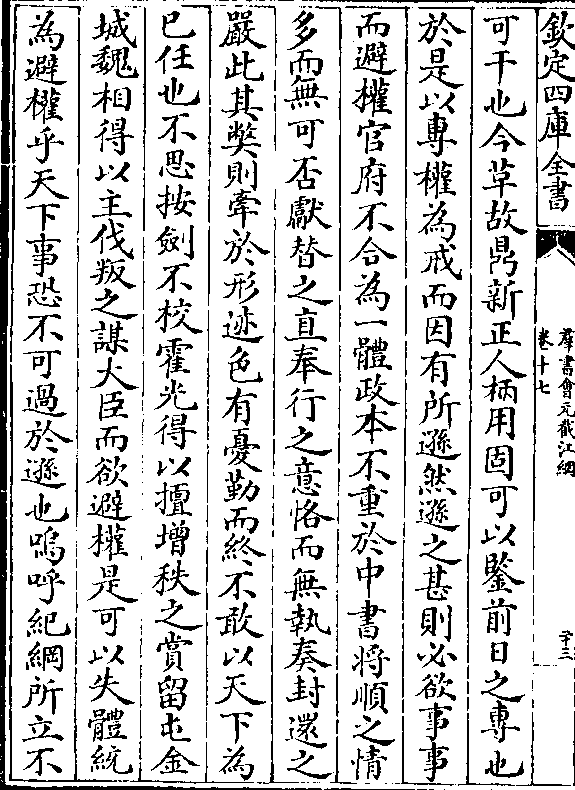 欽定四庫全書
羣書會元截江網
卷十七
二十三
可干也今草故鼎新正人柄用固可以鑒前日之專也
於是以專權為戒而因有所遜然遜之甚則必欲事事
而避權官府不合為一體政本不重於中書將順之情
多而無可否獻替之直奉行之意恪而無執奏封還之
嚴此其獘則牽於形迹色有憂勤而終不敢以天下為
已任也不思按劍不校霍光得以擅增秩之賞留屯金
城魏相得以主伐叛之謀大臣而欲避權是可以失體統
為避權乎天下事恐不可過於遜也嗚呼紀綱所立不